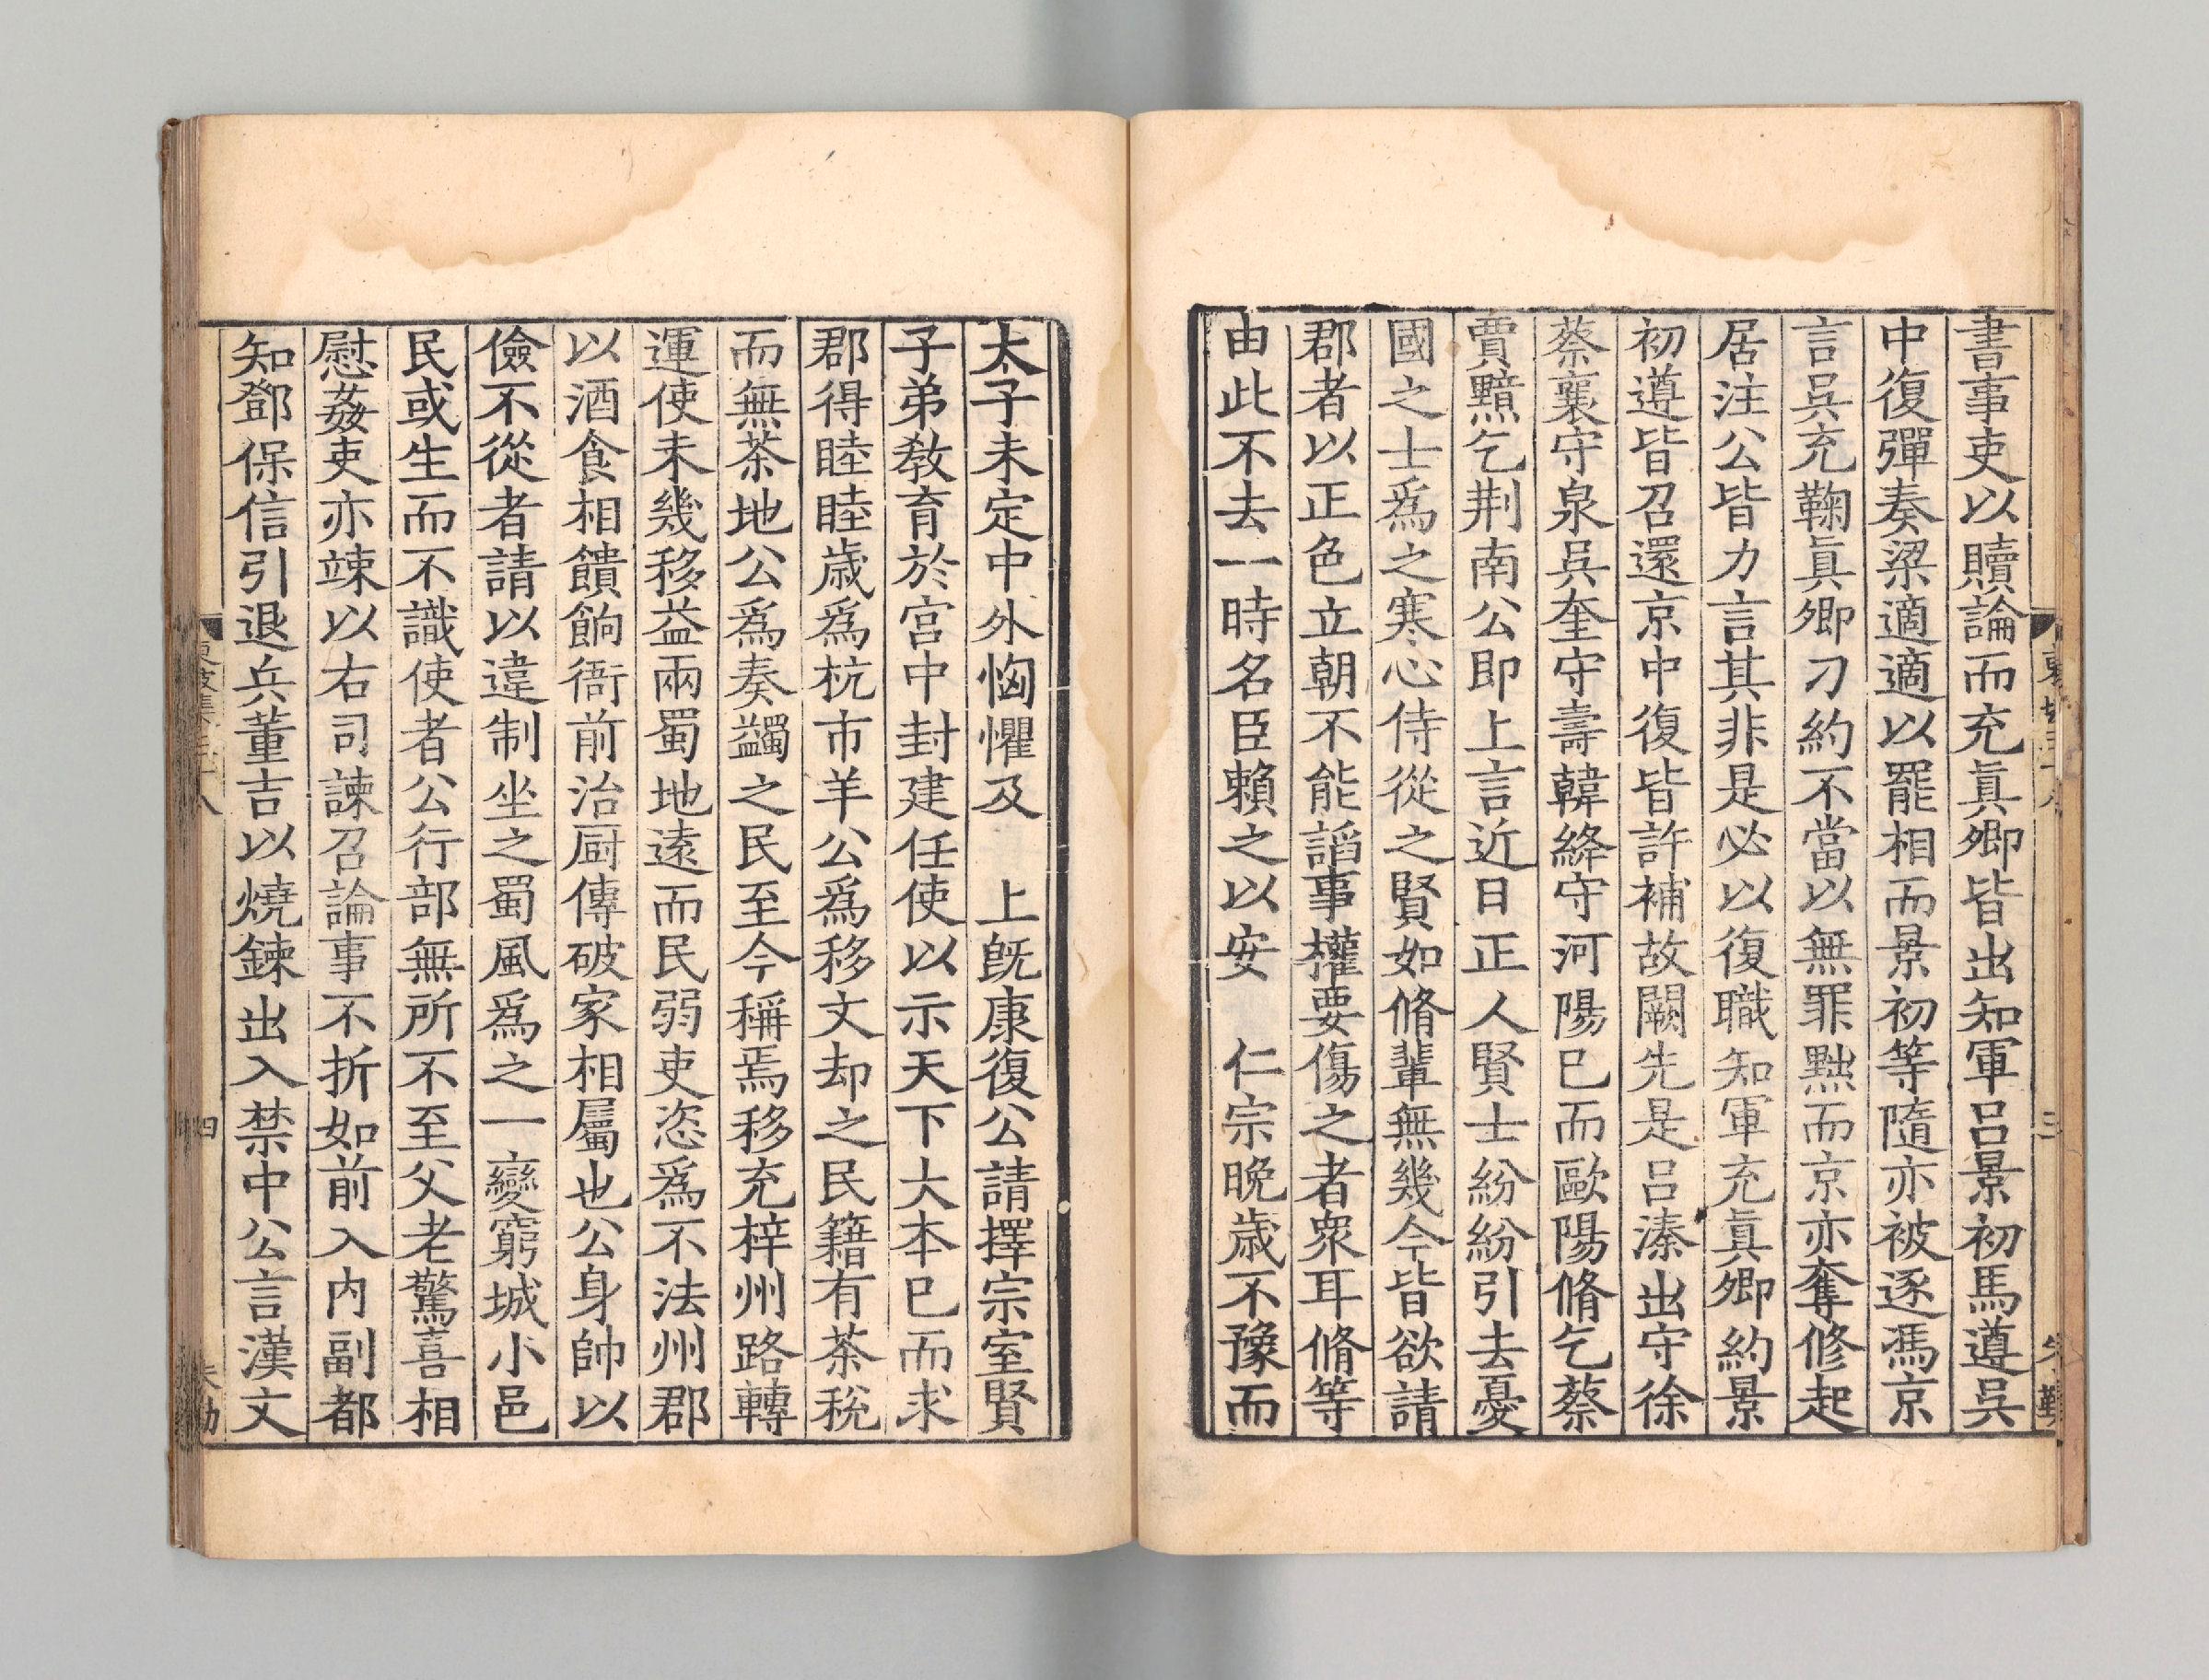 書事吏以贖論而充眞卿皆出知軍呂景初馬遵吳
中復彈奏梁適適以罷相而景初等隨亦被逐馮京
言吳充鞠眞卿刁約不當以無罪黜而京亦奪修起
居注公皆力言其非是必以復職知軍充眞卿約景
初遵皆召還京中復皆許補故闕先是呂溱出守徐
蔡襄守泉吳奎守壽韓絳守河陽已而歐陽脩乞蔡
賈黯乞荆南公即上言近日正人賢士紛紛引去憂
國之士爲之寒心侍從之賢如脩輩無幾今皆欲請
郡者以正色立朝不能諂事權要傷之者衆耳脩等
由此不去一時名臣賴之以安　仁宗晚歲不豫而
太子未定中外恟懼及　上旣康復公請擇宗室賢
子弟教育於宮中封建任使以示天下大本已而求
郡得睦睦歲爲杭市羊公爲移文却之民籍有茶稅
而無茶地公爲奏蠲之民至今稱焉移充梓州路轉
運使未幾移益兩蜀地遠而民弱吏恣爲不法州郡
以酒食相饋餉衙前治厨傳破家相屬也公身帥以
儉不從者請以違制坐之蜀風爲之一變窮城小邑
民或生而不識使者公行部無所不至父老驚喜相
慰姦吏亦竦以右司諫召論事不折如前入内副都
知鄧保信引退兵董吉以燒鍊出入禁中公言漢文